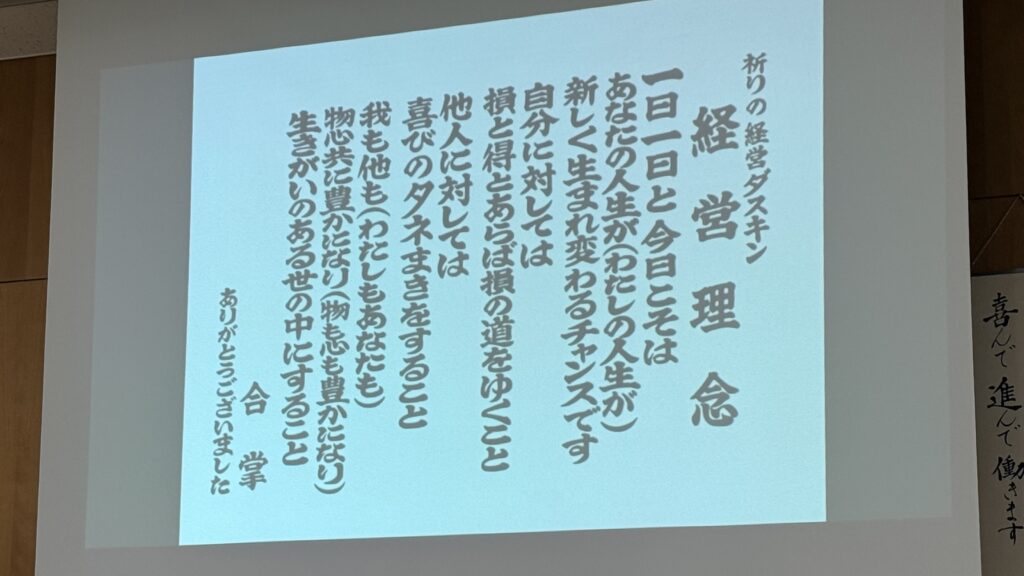 祈りの経営ダスキン
経営理念
一日一日と今日こそは
あなたの人生が(わたしの人生が)
新しく生まれ変わるチャンスです
自分に対しては
損と得とあらば損の道をゆくこと
他人に対しては
喜びのタネまきをすること
我も他も(わたしもあなたも)
物心共に豊かになり(物も心も豊かになり)
生きがいのある世の中にすること
合掌
ありがとうございました
喜んで進んで働きます